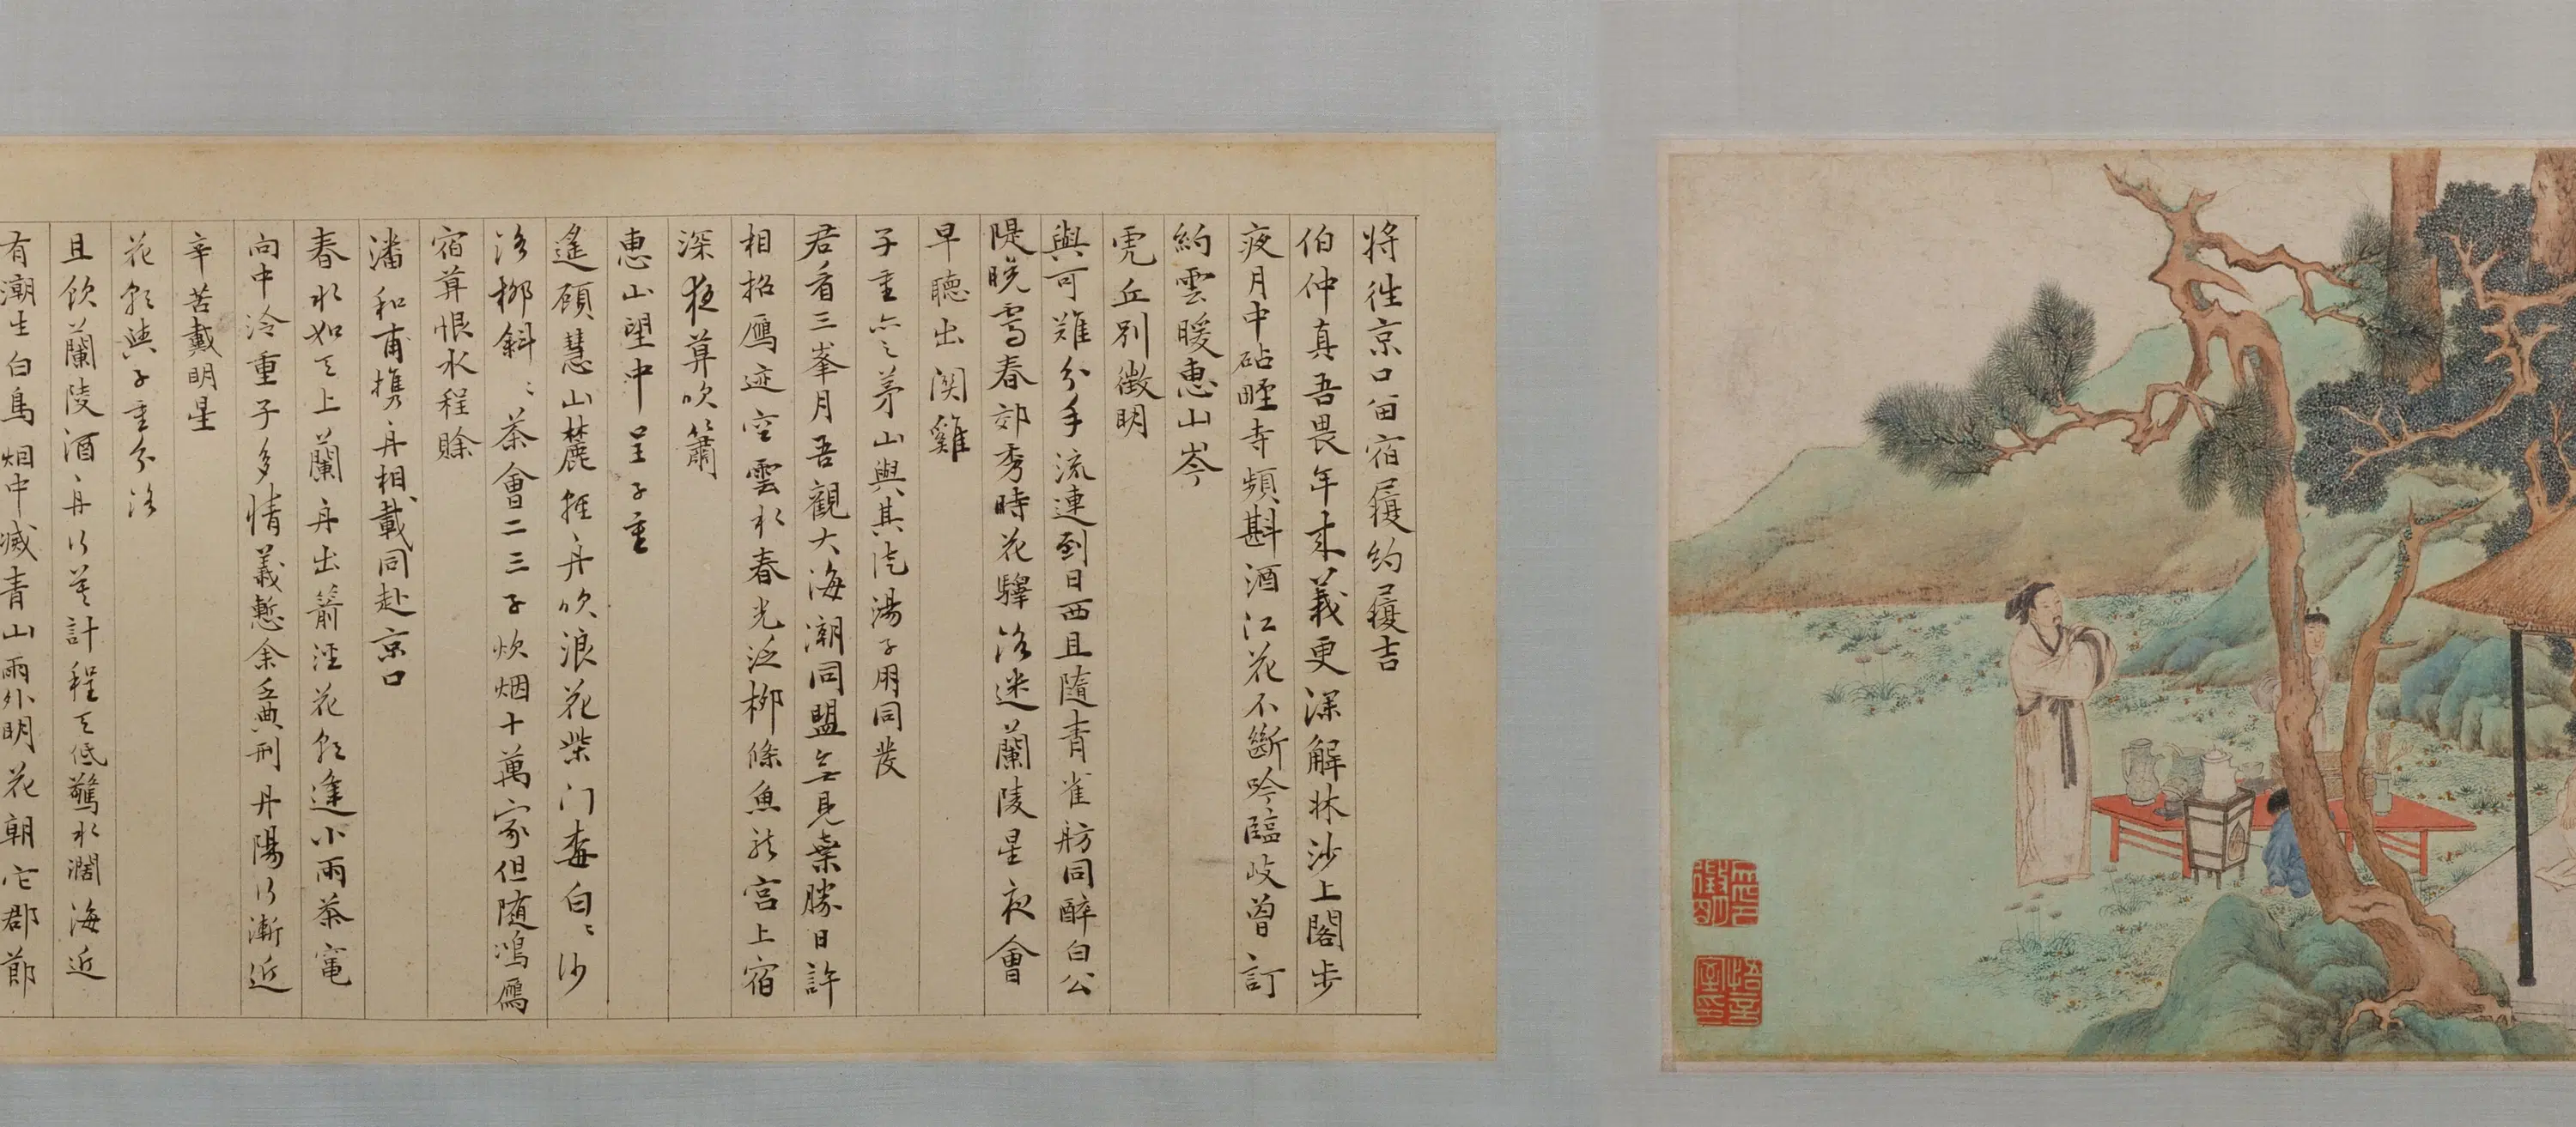 將往京口留宿履約履吉
伯仲真吾畏年來義更深解牀沙上閣步
夜月中砧野寺頻斟酒江花不斷吟臨歧曾訂
約雲暖惠山岑
虎丘別徵明
與可難分手流連到日西且隨青雀舫同醉白公
隄晚鶯春郊秀時花驛路迷蘭陵星夜會
早聽出關雞
子重六之茅山與其徒湯子朋同發
君看三峯月吾觀大海潮同盟無見棄勝日許
相招鴈迹空雲水春光泛柳條魚龍宮上宿
深夜莫吹簫
惠山望中呈子重
遙顧慧山麓輕舟吹浪花柴門春白〻沙
路柳斜〻茶會二三子炊烟十萬家但隨鴻鴈
宿莫恨水程賒
潘和甫攜舟相載同赴京口
春水如天上蘭舟出箭涇花能逢小雨茶竈
向中泠重子多情義慙余乏典刑丹陽行漸近
辛苦戴明星
花朝與子重分路
且飲蘭陵酒舟行莫計程天低驚水濶海近
有潮生白鳥烟中滅青山雨外明花朝它郡節
徵明
悟言室印